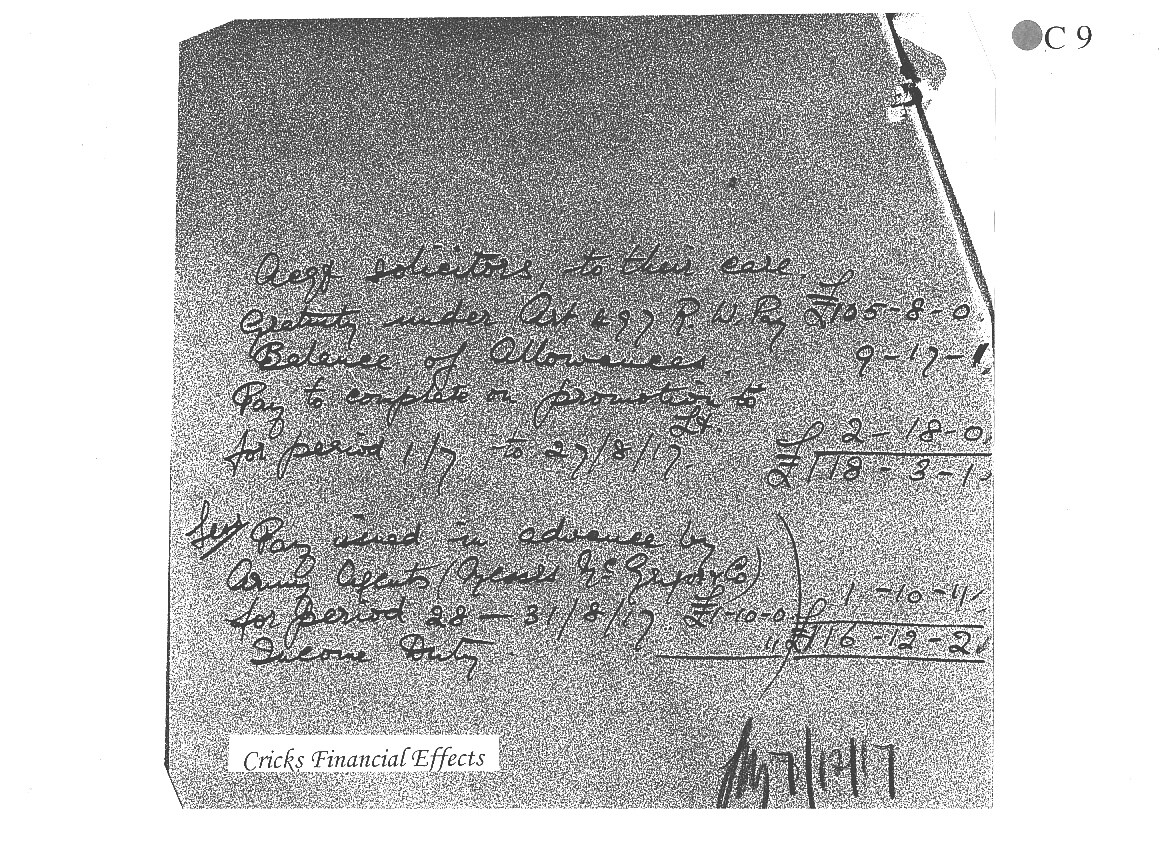 C 9
solicitors to their care.
Gratuity under Art 497 R. W. Pay £105-8-0
Balance of Allowances. 9-17-1
Pay to complete on promotion to Lt.
for period 1/7 to 27/8/17. £ 2-18-0
£118-3-1
Less Pay issued in advance by
Army Agents (Messrs McGrigor & Co)
for period 28-31/8/17 £1-10-0 1-10-11
Income Duty 11 £116-12-2
Cricks Financial Effects
7/12/17